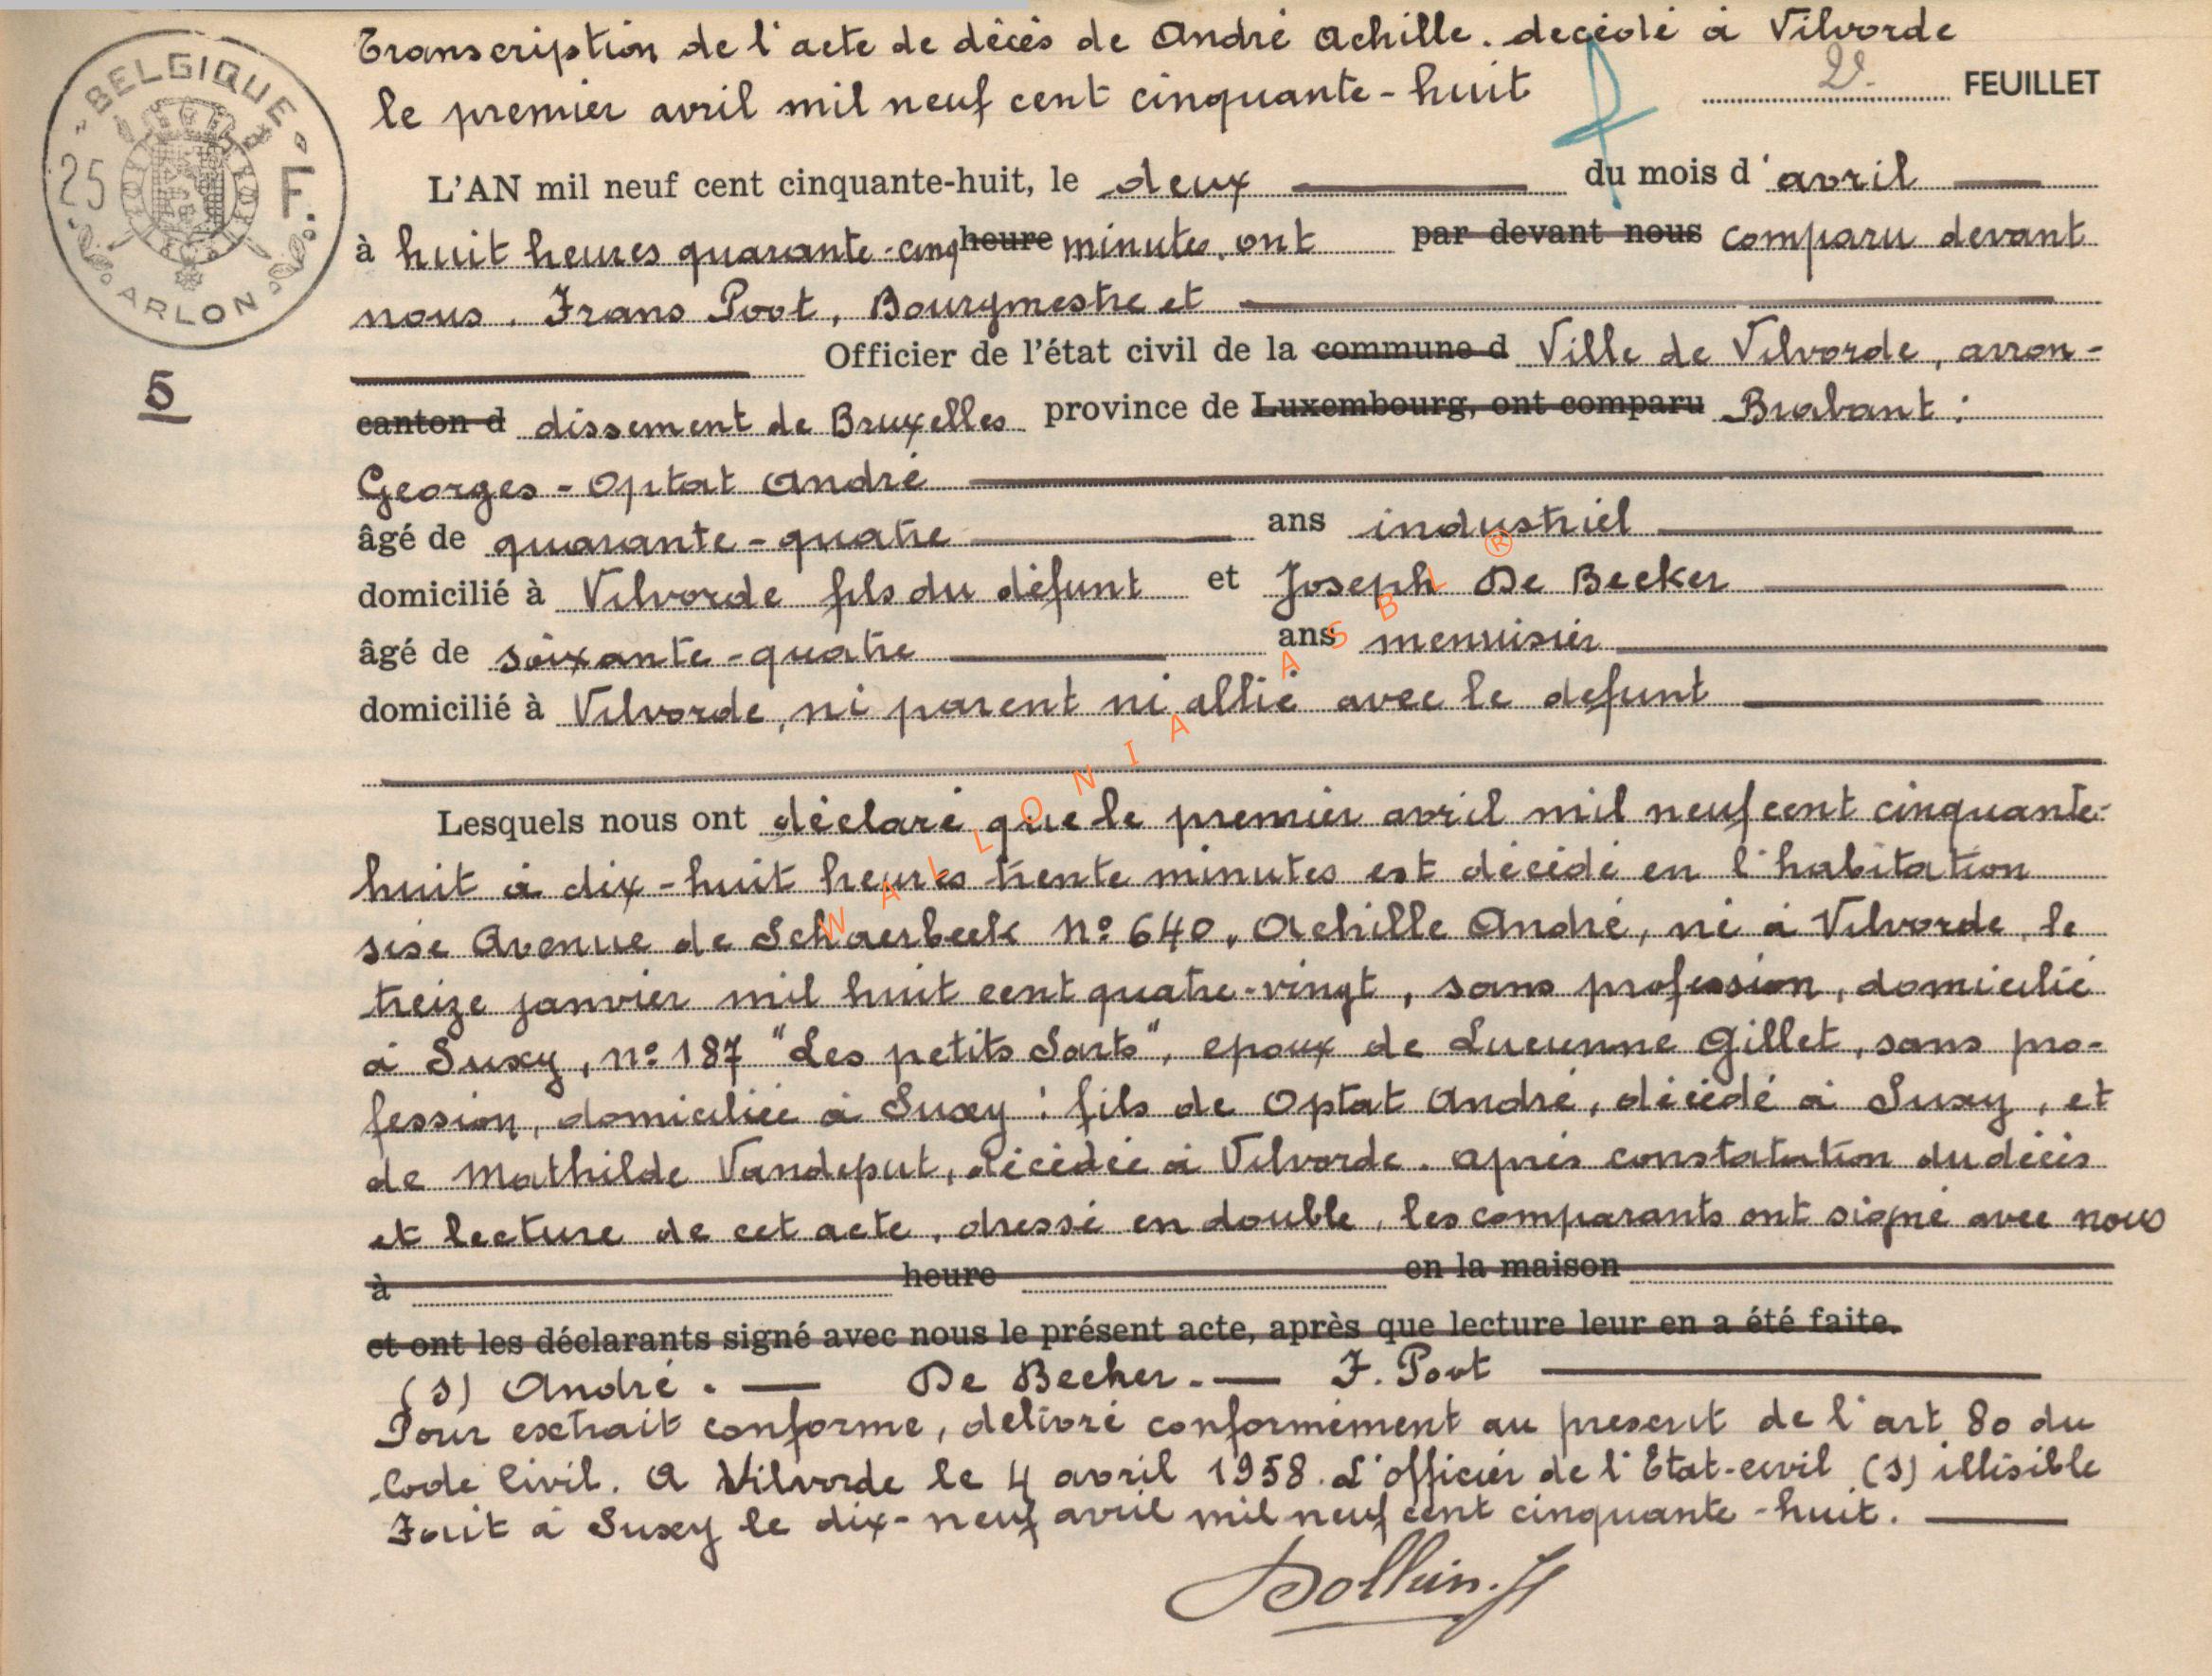 Transcription de l'acte de décès de André Achille. decédé à Vilvorde
le premier avril mil neuf cent cinquante-huit
2e. FEUILLET
BELGIQUE
25 F.
ARLON
L'AN mil neuf cent cinquante-huit, le deux du mois d'avril
à huit heures quarante-cinq heure minutes, ont par devant nous comparu devant
nous. Frans Poot, Bourgmestre et
Officier de l'état civil de la commune d Ville de Vilvorde, arron-
5
canton d dissement de Bruxelles province de Luxembourg, ont comparu Brabant :
Georges-Optat André
âgé de quarante-quatre ans industriel
domicilié à Vilvorde fils du défunt et Joseph De Becker
âgé de soixante-quatre ans menuisier
domicilié à Vilvorde, ni parent ni allié avec le defunt
Lesquels nous ont déclaré que le premier avril mil neuf cent cinquante-
huit à dix-huit heures trente minutes est décédé en l'habitation
sise Avenue de Schaerbeek N° 640, Achille André, né à Vilvorde, le
treize janvier mil huit cent quatre-vingt, sans profession, domicilié
à Suxy, n° 187 "Les petits Sarts", epoux de Lucienne Gillet, sans pro-
fession, domiciliée à Suxy : fils de Optat André, décédé à Suxy, et
de Mathilde Vandeput, décédée à Vilvorde. après constatation du décès
et lecture de cet acte, dressé en double, les comparants ont signé avec nous
à heure en la maison
et ont les déclarants signé avec nous le présent acte, après que lecture leur en a été faite.
(s) André. — De Becker. — F. Poot
Pour extrait conforme, délivré conformément au present de l'art 80 du
Code Civil. A Vilvorde le 4 avril 1958. L'officier de l'Etat-civil (s) illisible
Fait à Suxy le dix-neuf avril mil neuf cent cinquante-huit.
WALLONIA ASBL ®